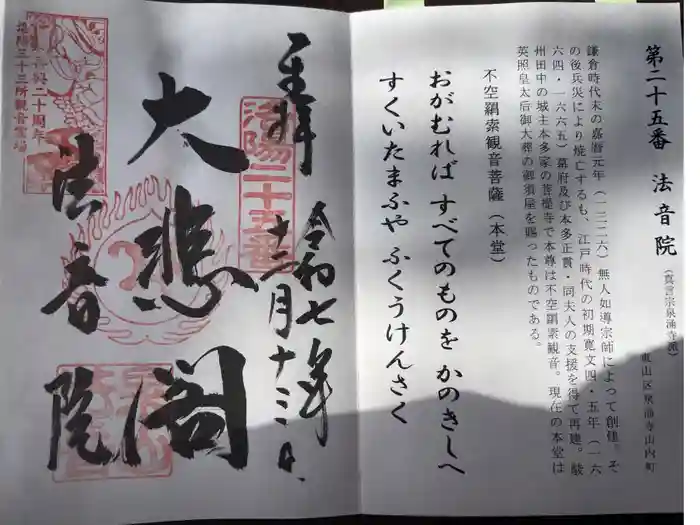 第二十五番 法音院(真言宗泉涌寺派)
東山区泉涌寺山内町
鎌倉時代末の嘉暦元年(一三二六)無人如導宗師によって創建。そ
の後兵災により焼亡するも、江戸時代の初期寛文四・五年(一六
六四・一六六五)幕府及び本多正貫・同夫人の支援を得て再建。駿
州田中の城主本多家の菩提寺で本尊は不空羂索観音。現在の本堂は
英照皇太后御大葬の御須屋を賜ったものである。
不空羂索観音菩薩(本堂)
おがむれば すべてのものを かのきしへ
すくいたまふや ふくうけんさく
奉拝
洛陽二十五番
令和七年
十二月十三日
大悲閣
法音院
再興二十周年
洛陽三十三所観音霊場